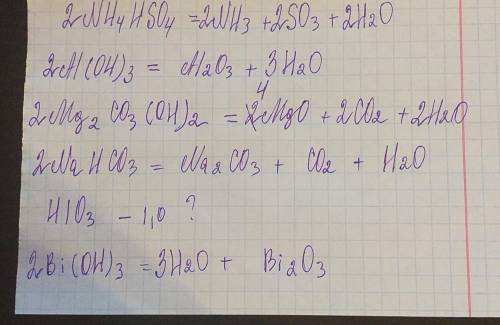 2NH4HSO4 = 2NH3 + 2SO3 + 2H2O
2Al(OH)3 = Al2O3 + 3H2O
2Mg2CO3(OH)2 = 4MgO + 2CO2 + 2H2O
2NaHCO3 = Na2CO3 + CO2 + H2O
HIO3 - I2O ?
2Bi(OH)3 = 3H2O + Bi2O3